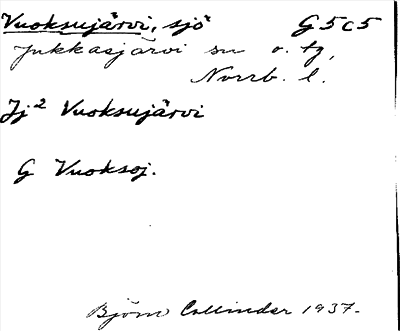 Vuoksujärvi, sjö G5c5
Jukkasjärvi sn o. tg,
Norrb. l.
Jj² Vuoksujärvi
G Vuoksoj.
Björn Collinder 1937.